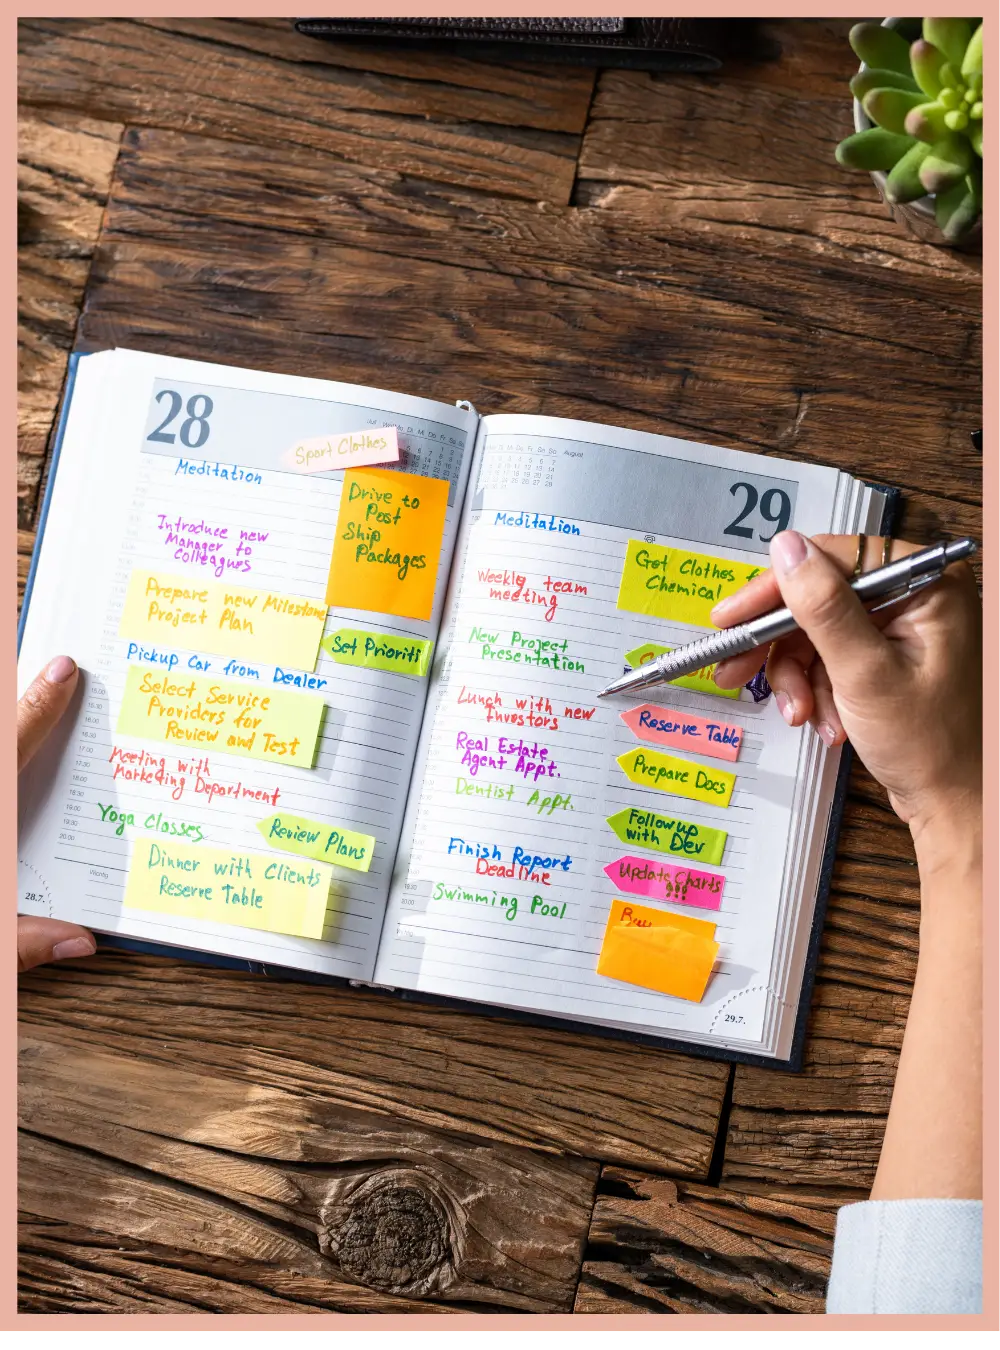 28
Sport Clothes
Meditation
Drive to
Post
Ship
Packages
Introduce new
Manager to
Colleagues
Prepare new Milestone
Project Plan
Set Prioriti
Pickup Car from Dealer
Select Service
Providers for
Review and Test
Meeting with
Marketing Department
Yoga Classes
Review Plans
Dinner with Clients
Reserve Table
Wichtig
28.7.
August
29
Meditation
Get Clothes f
Chemical
Weekly team
meeting
New Project
Presentation
Lunch with new
Investors
Reserve Table
Real Estate
Agent Appt.
Prepare Docs
Dentist Appt.
Follow up
with Dev
Finish Report
Deadline
Update Charts
!!!
Swimming Pool
Buy
29.7.